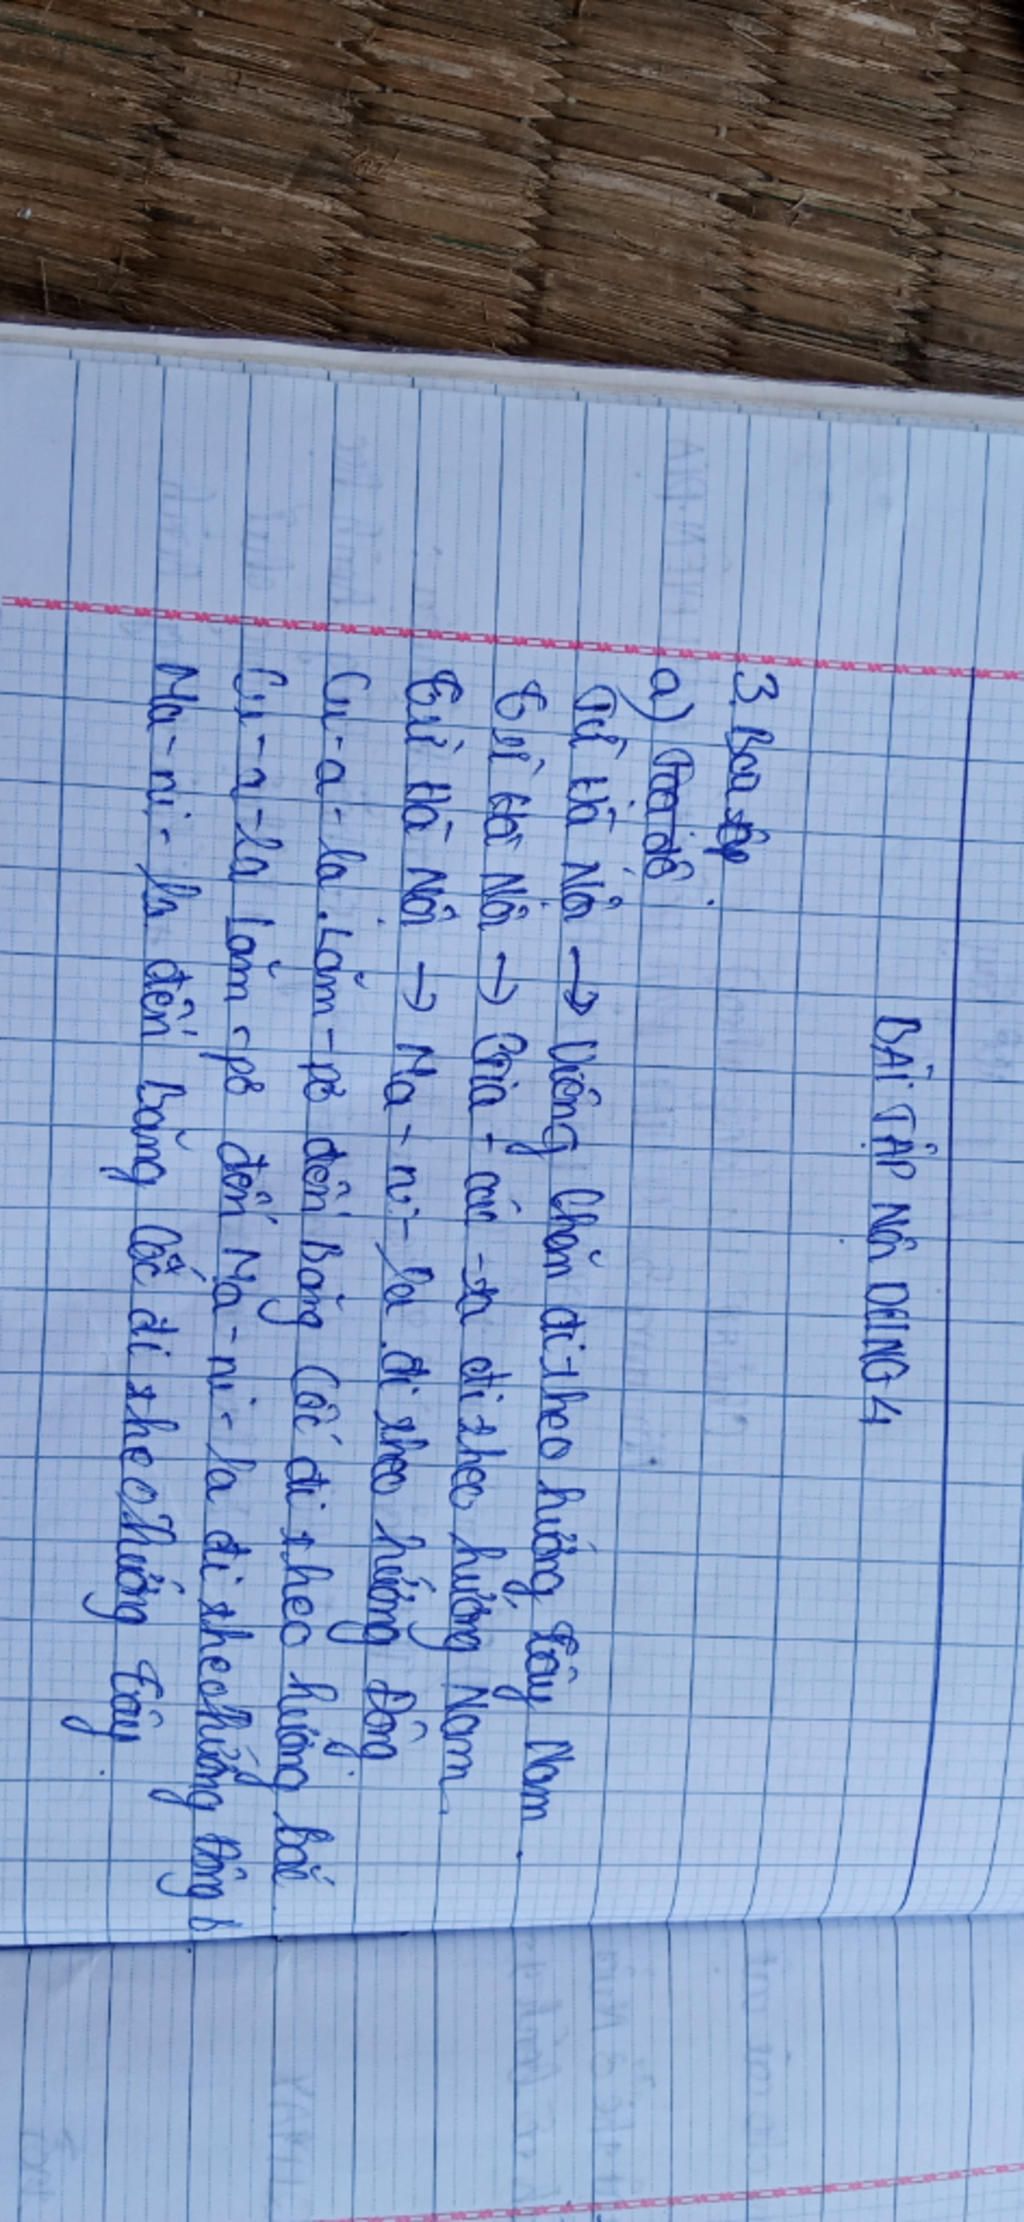 BÀI TẬP NỘI DUNG 4
3. Bài tập
a) Tọa độ
Từ Hà Nội → Viêng Chăn đi theo hướng Tây Nam.
Từ Hà Nội → Gia-các-ta đi theo hướng Nam
Từ Hà Nội → Ma-ni-la đi theo hướng Đông
Cu-a-la Lăm-pơ đến Băng Cốc đi theo hướng bắc
Cu-a-la Lăm-pơ đến Ma-ni-la đi theo hướng Đông b
Ma-ni-la đến Băng Cốc đi theo hướng Tây.